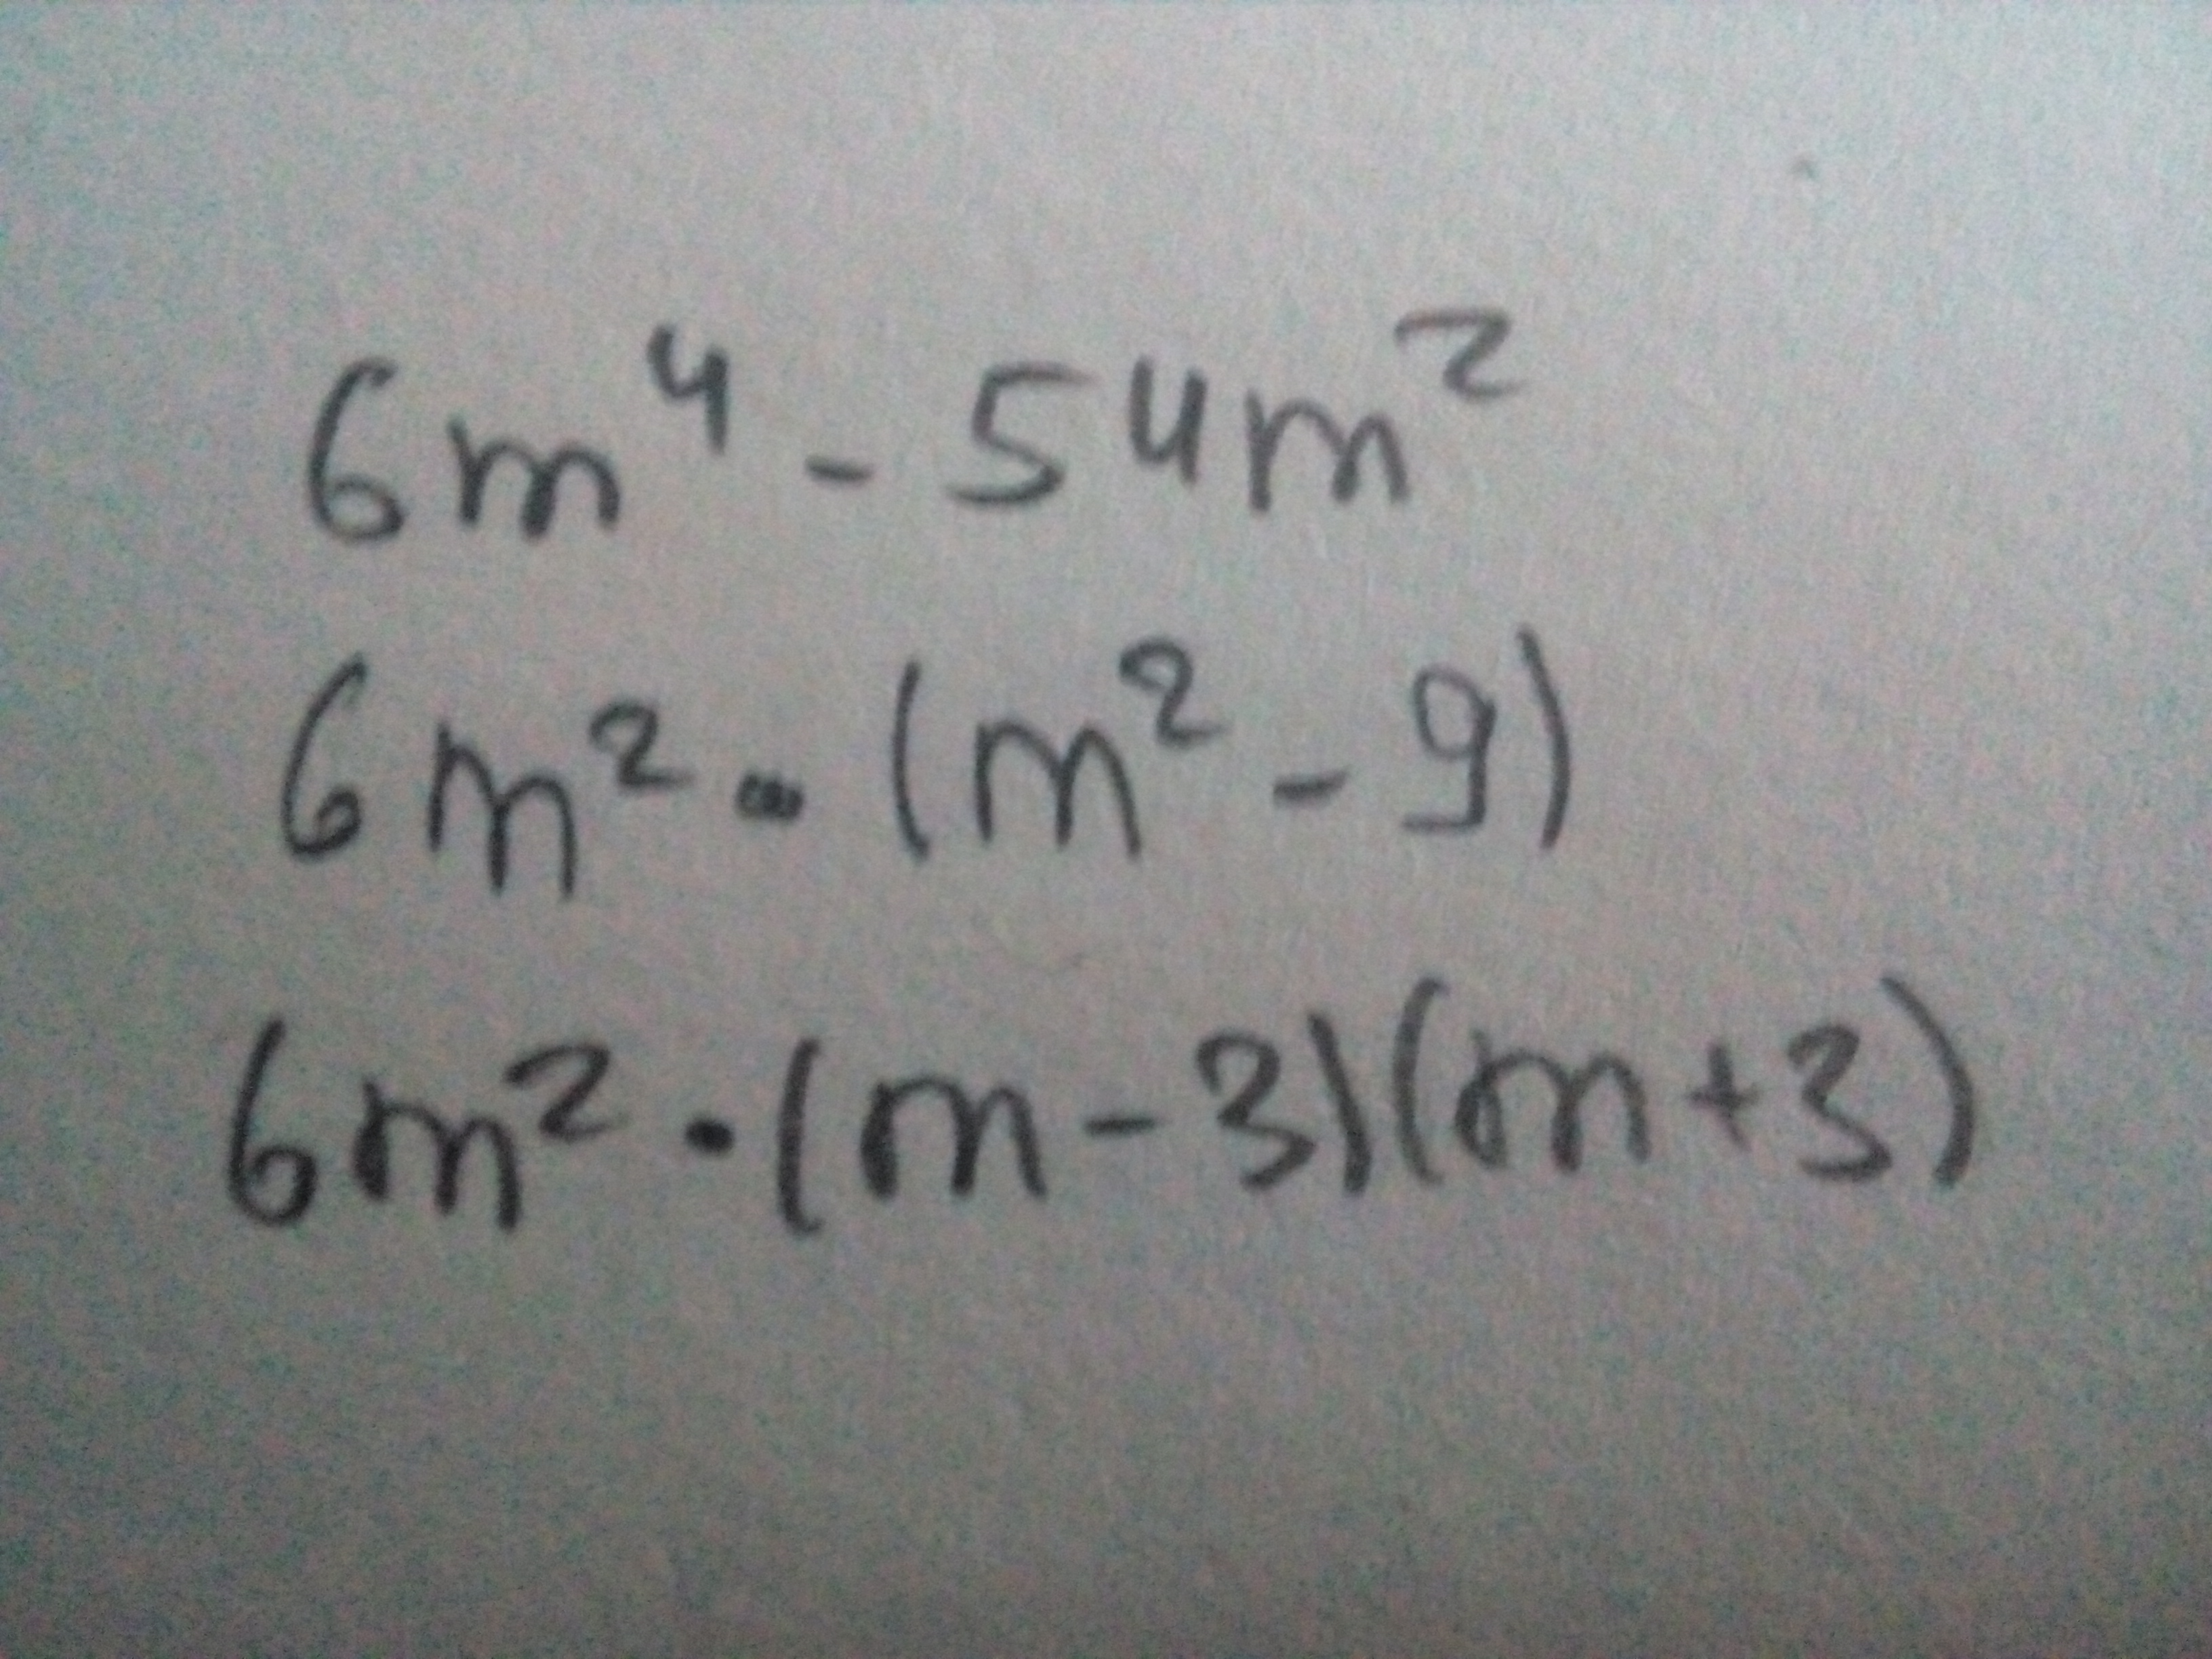 6m⁴ - 54m²
6m² · (m² - 9)
6m² · (m - 3)(m + 3)